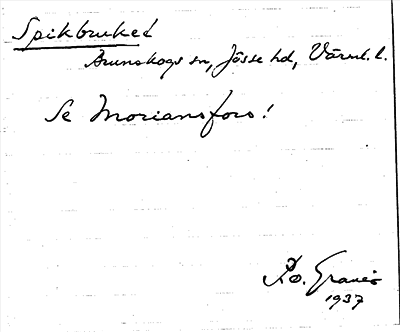 Spikbruket
Brunskogs sn, Jösse hd, Värml. l.
Se Moriansfors!
R. O. Granér
1937